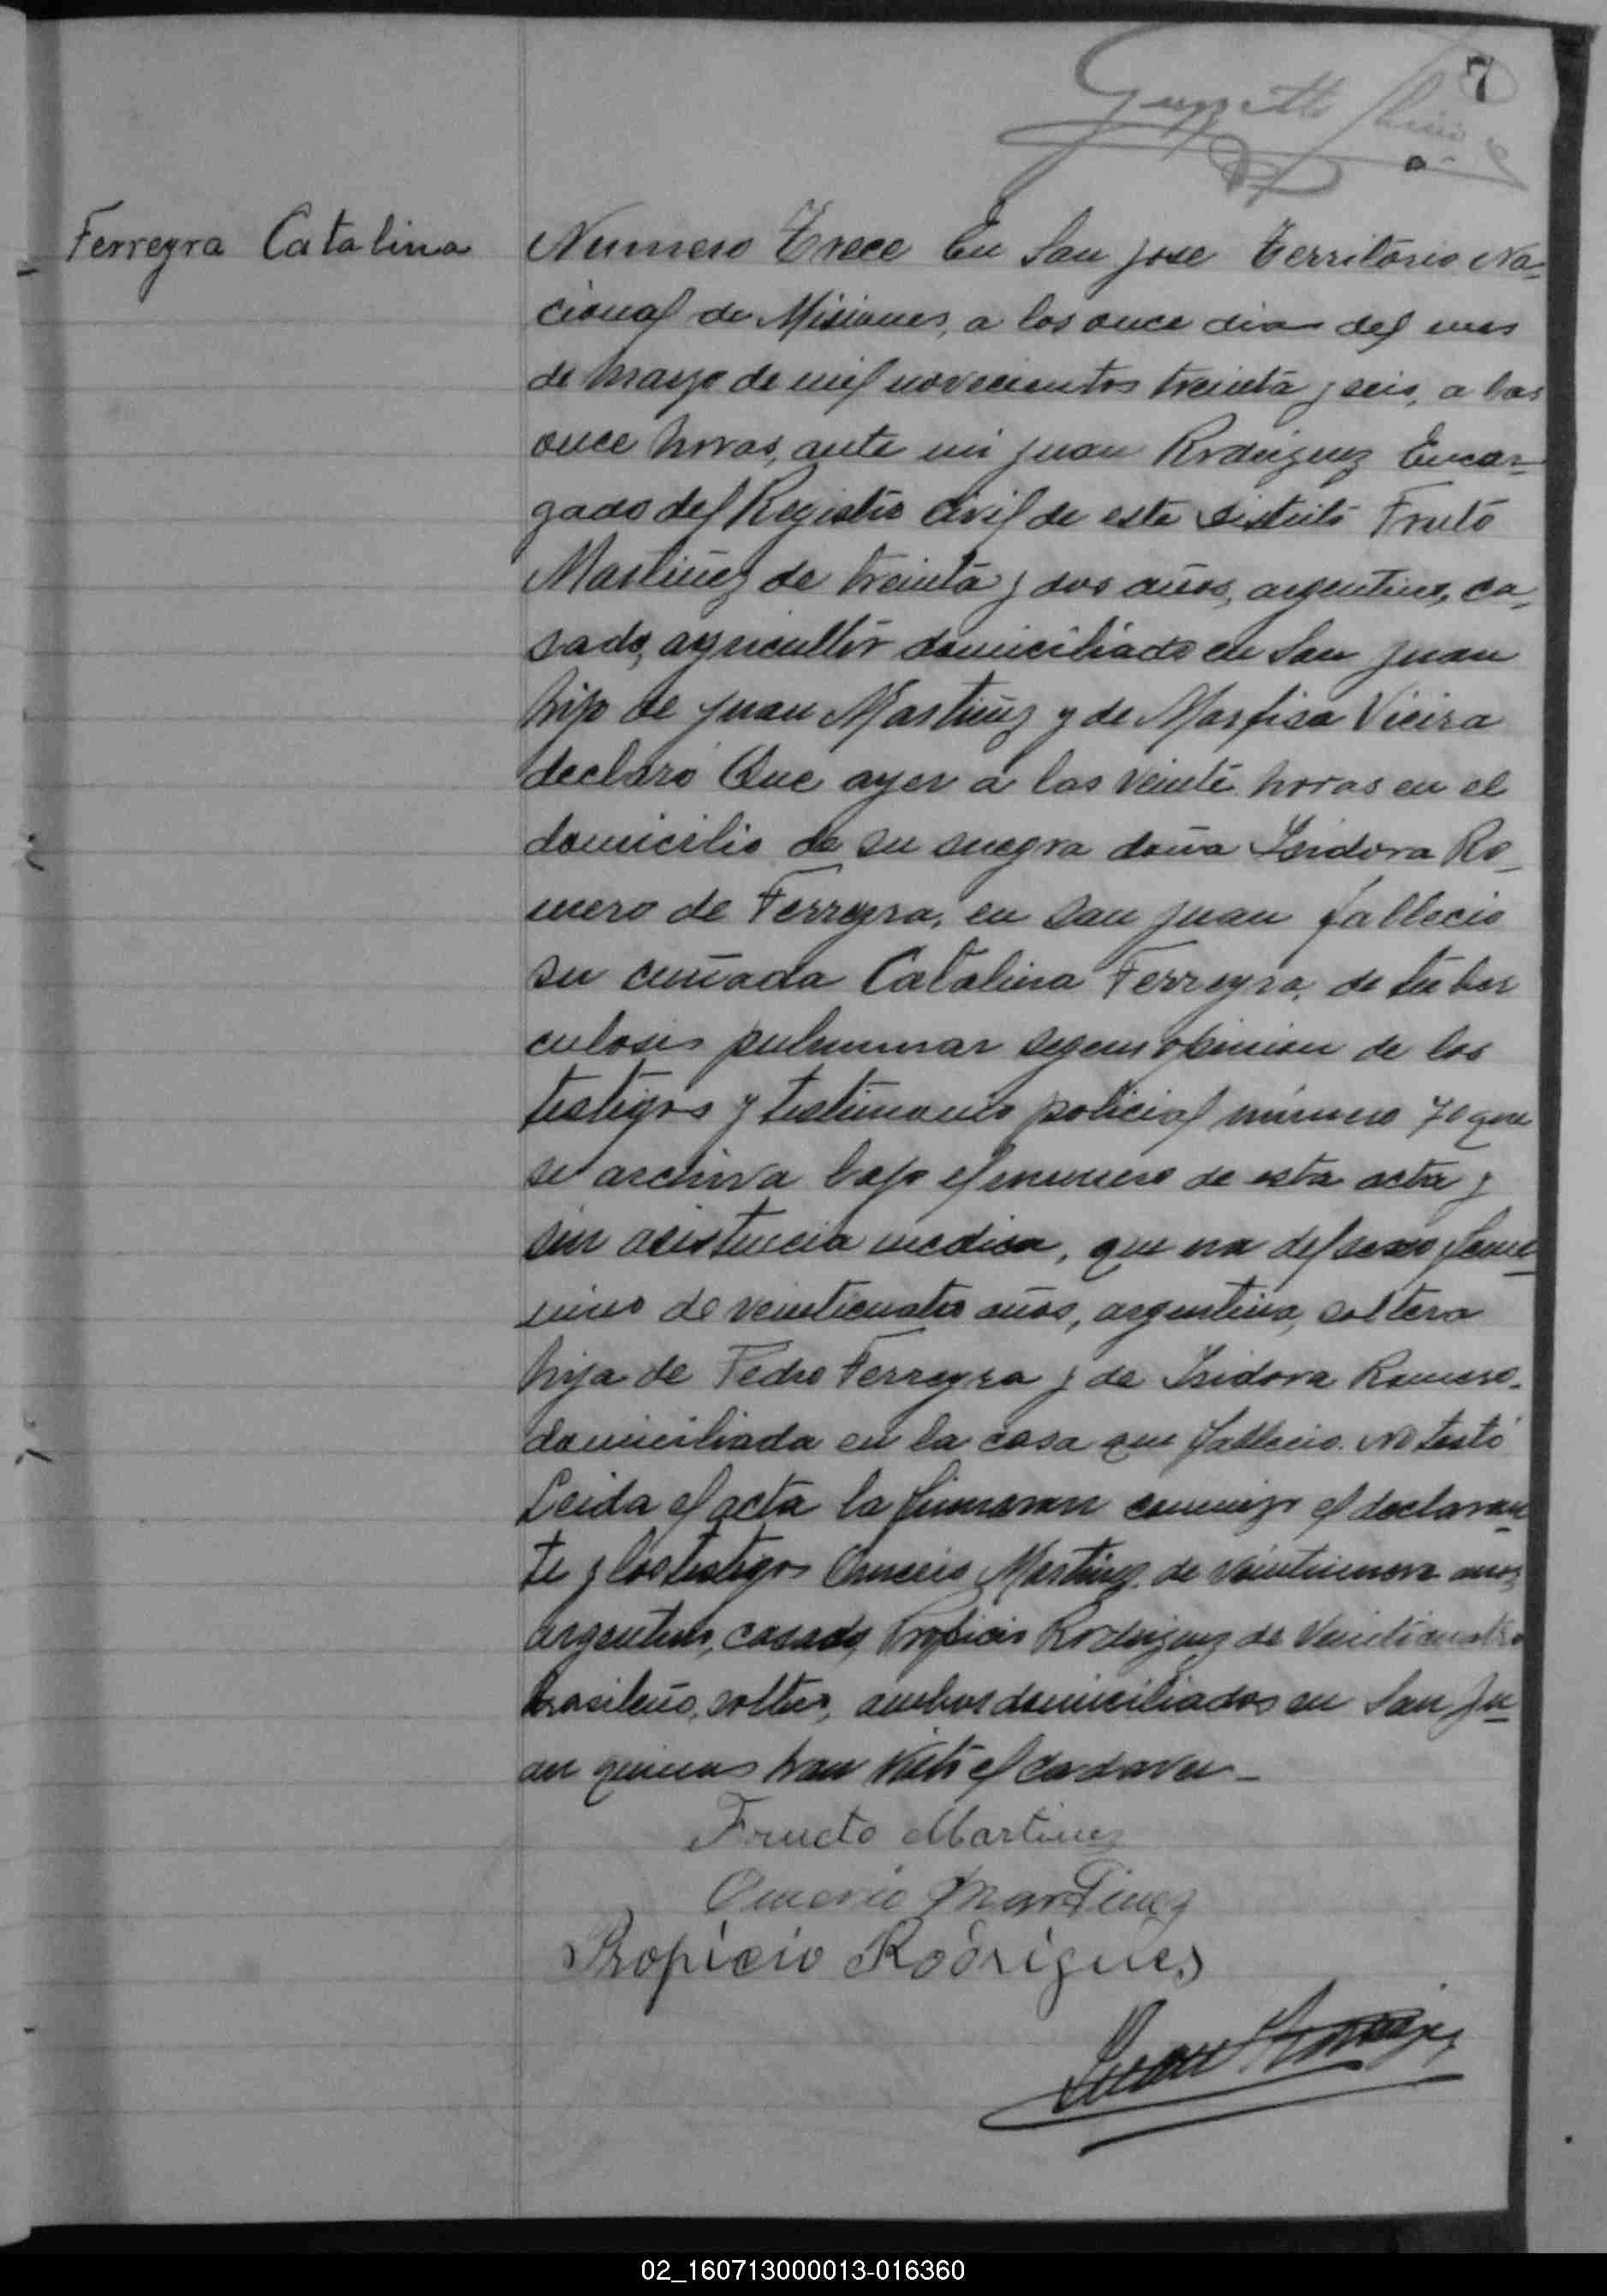 7
Ferreyra Catalina
Numero Trece En San Jose Territorio Na-
cional de Misiones, a los once dias del mes
de mayo de mil novecientos treinta y seis, a las
once horas, ante mi Juan Rodriguez Encar-
gado del Registro Civil de este distrito Fruto
Martinez de treinta y dos años, argentino, ca-
sado, agricultor domiciliado en San Juan
hijo de Juan Martinez y de Marfisa Vieira
declaró Que ayer a las veinte horas en el
domicilio de su suegra doña Isidora Ro-
mero de Ferreyra, en San Juan fallecio
su cuñada Catalina Ferreyra, de tuber
culosis pulmonar segun opinion de los
testigos y testimonio policial número 70 que
se archiva bajo el numero de esta acta y
sin asistencia medica, que era del sexo feme-
nino de veinticuatro años, argentina, soltera
hija de Pedro Ferreyra y de Isidora Romero.
domiciliada en la casa que fallecio. No testó
Leida el acta la firmaron conmigo el declaran-
te y los testigos Omerio Martinez de veintinueve años
argentino, casado, Propicio Rodriguez de Veinticuatro
brasileño, soltero, ambos domiciliados en San Ju-
an quienes han visto el cadaver—
Fructo Martinez
Omerio Martinez
Propicio Rodrigues
Juan Rodriguez
02_160713000013-016360